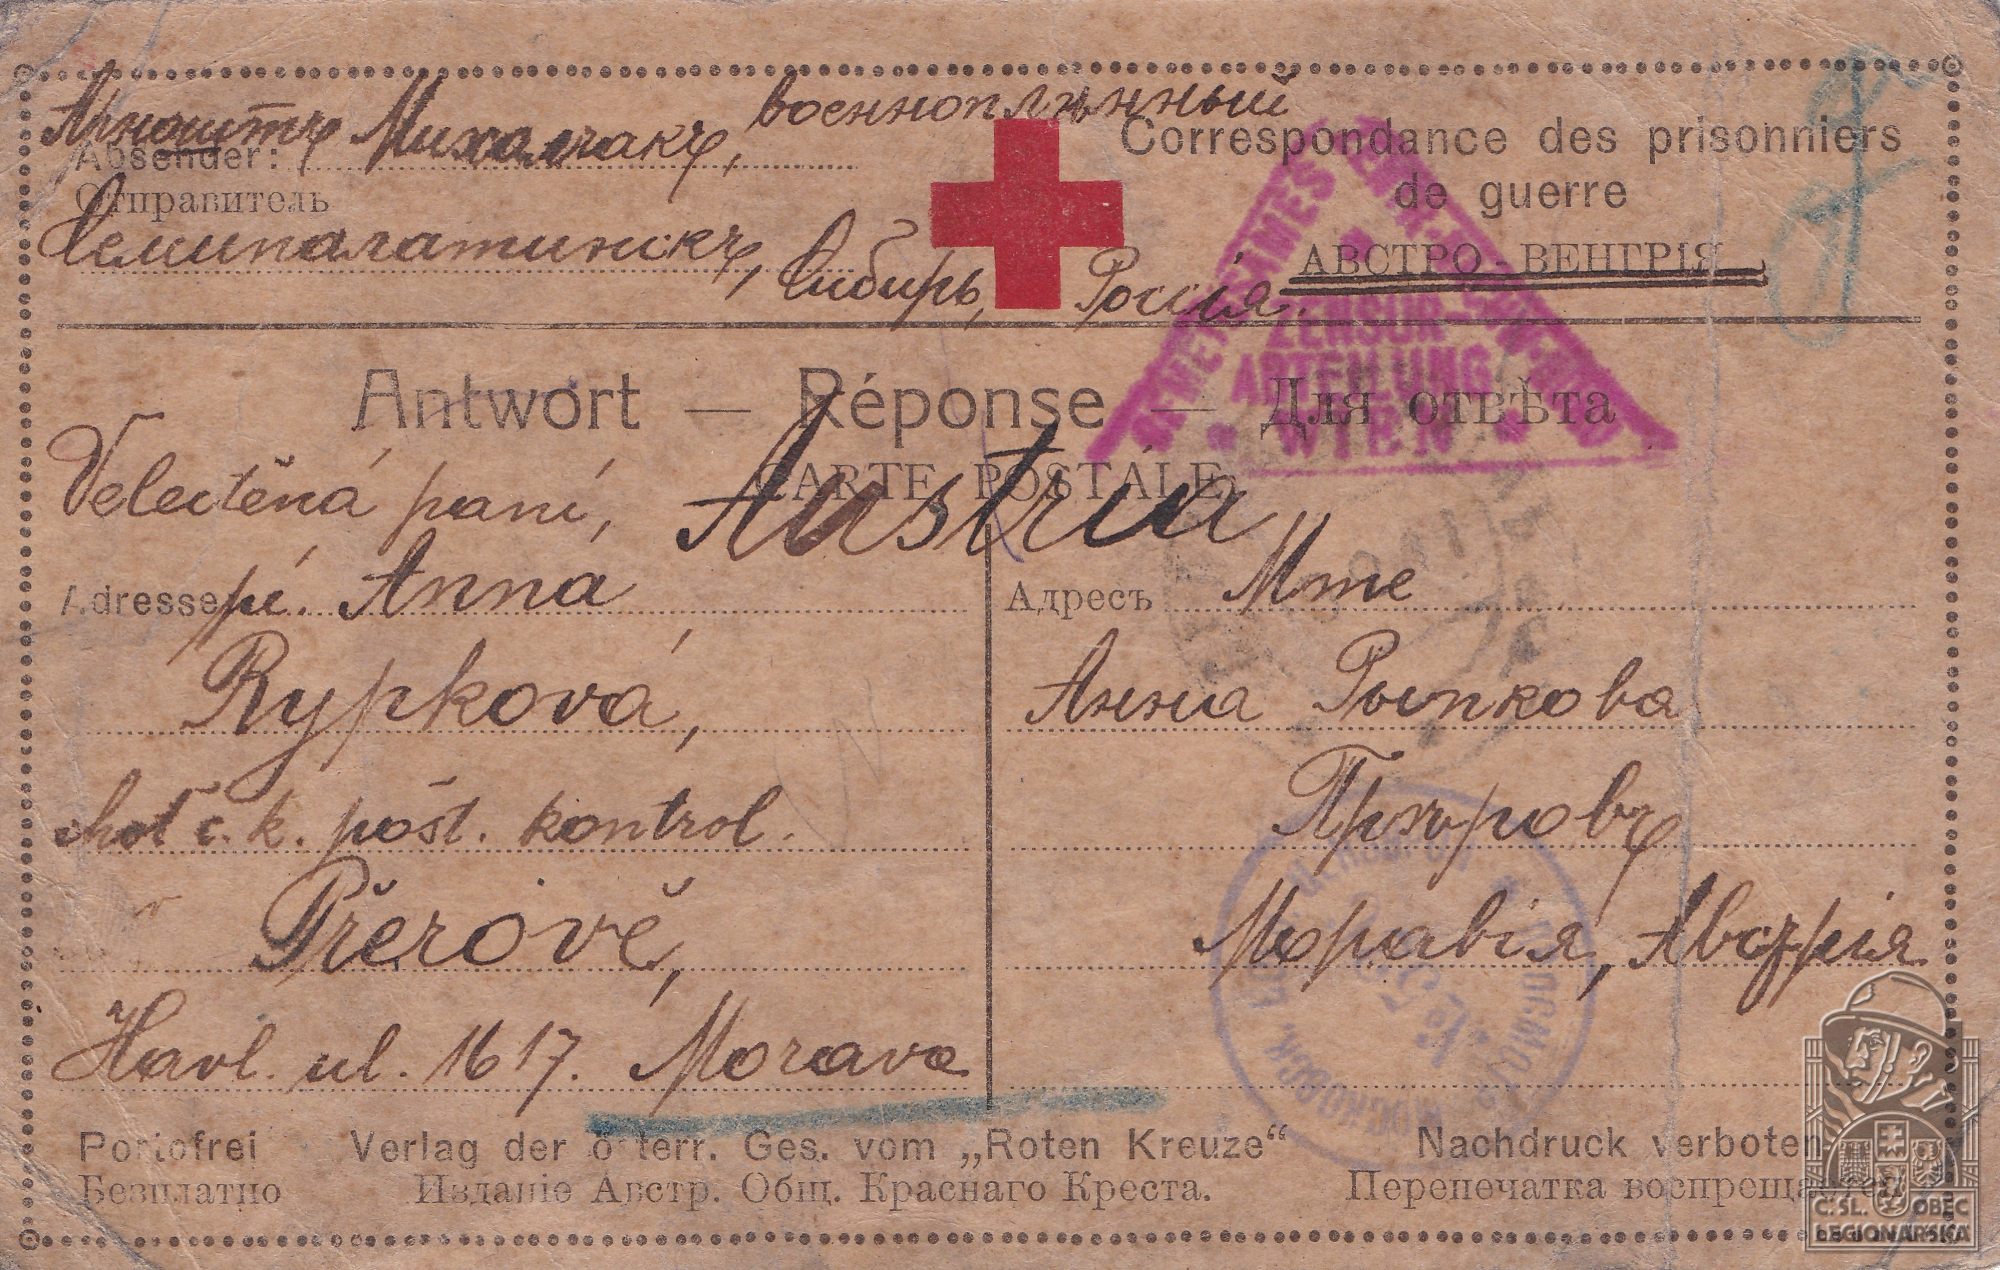 Арноштъ Михалчакъ, военноплѣнный
Absender:
Отправитель
Семипалатинскъ, Сибирь, Россія.
Correspondance des prisonniers
de guerre
АВСТРО-ВЕНГРІЯ
Antwort — Réponse — Для отвѣта
CARTE POSTALE
ZENSUR-
ABTEILUNG
WIEN
Velectěná paní,
Austria
Adresse pí. Anna
Rypková,
choť c. k. pošt. kontrol.
Přerově,
Havl. ul. 1617. Morava
Адресъ Mme
Анна Рыпкова
Пржеровъ
Моравія, Австрія
Portofrei Verlag der österr. Ges. vom „Roten Kreuze“ Nachdruck verboten
Безплатно Изданіе Австр. Общ. Краснаго Креста. Перепечатка воспрещается
Č. SL. OBEC
LEGIONÁŘSKÁ